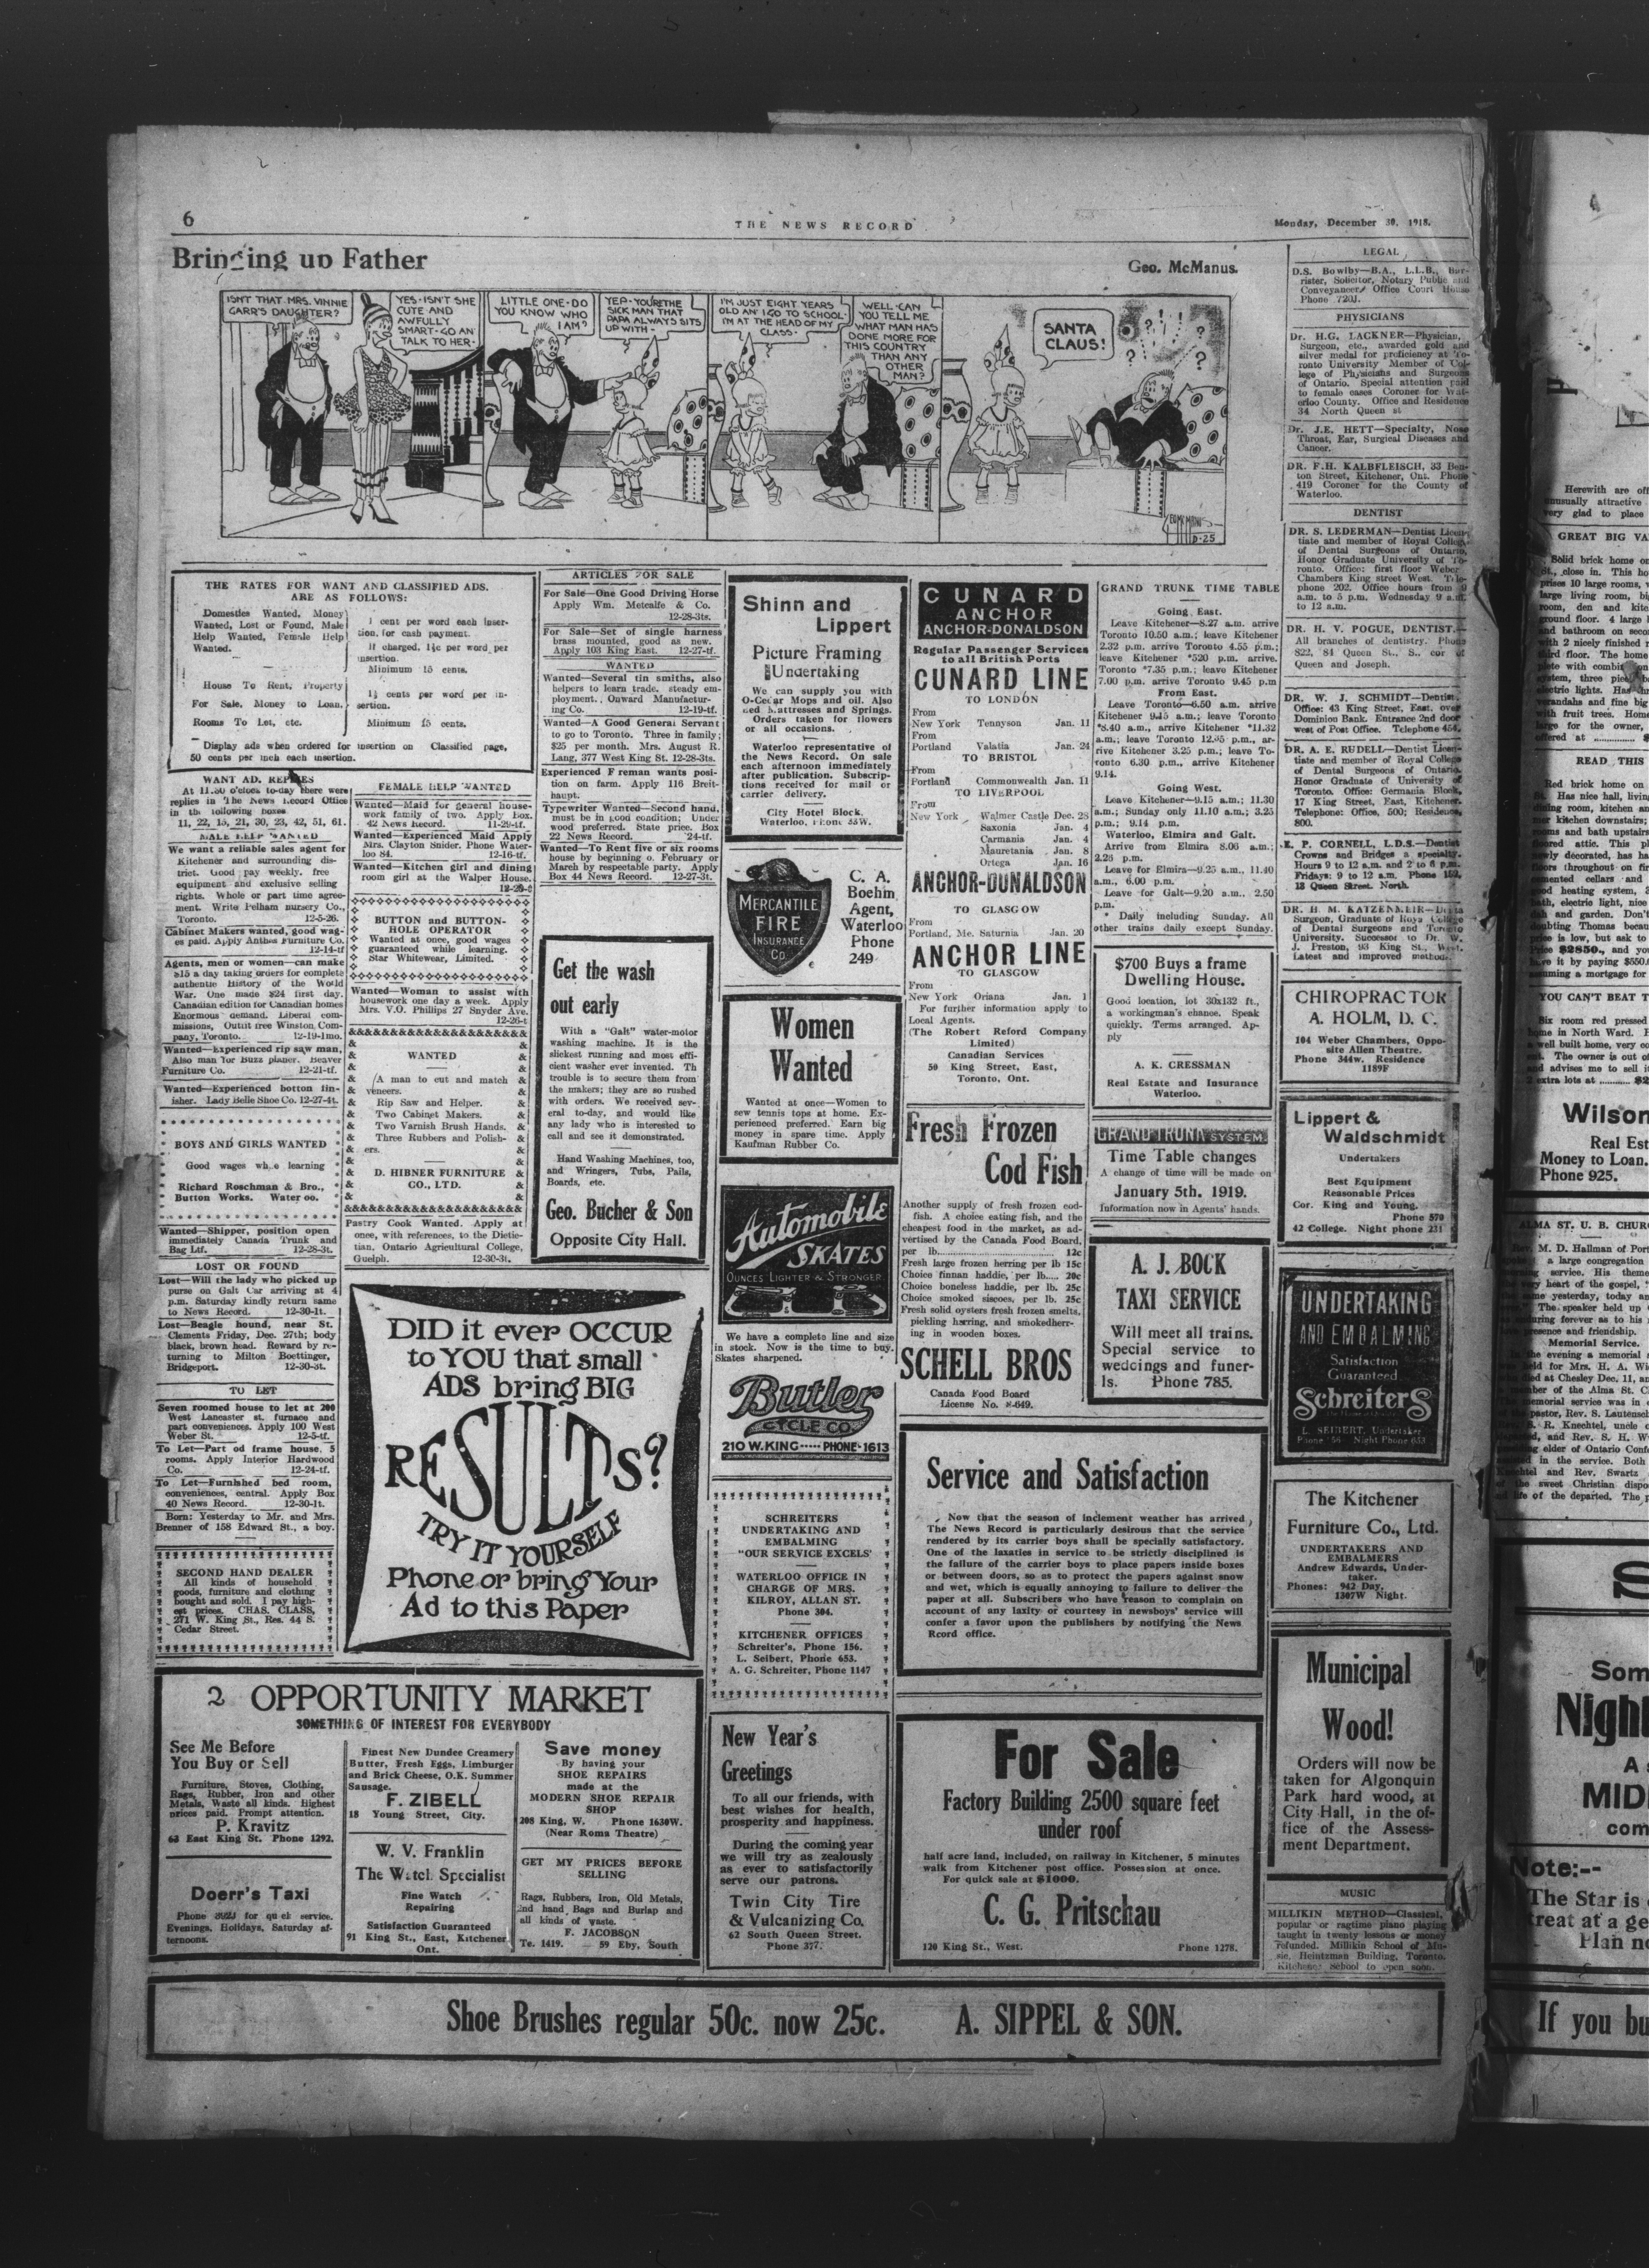 6
THE NEWS RECORD
Monday, December 30, 1918.
Bringing up Father
Geo. McManus.
ISN'T THAT MRS. VINNIE
GARR'S DAUGHTER?
YES-ISN'T SHE
CUTE-AND
AWFULLY
SMART-GO AN'
TALK TO HER-
LITTLE ONE-DO
YOU KNOW WHO
I AM?
YEP-YOU'RE THE
SICK MAN THAT
PAPA ALWAYS SITS
UP WITH-
I'M JUST EIGHT YEARS
OLD AN' I GO TO SCHOOL-
I'M AT THE HEAD OF MY
CLASS-
WELL-CAN
YOU TELL ME
WHAT MAN HAS
DONE MORE FOR
THIS COUNTRY
THAN ANY
OTHER
MAN?
SANTA
CLAUS!
THE RATES FOR WANT AND CLASSIFIED ADS.
ARE AS FOLLOWS:
Domestics Wanted, Money
Wanted, Lost or Found, Male
Help Wanted, Female Help
Wanted.
1 cent per word each inser-
tion, for cash payment.
If charged, 1½c per word per
insertion.
Minimum 15 cents.
House To Rent, Property
For Sale, Money to Loan,
Rooms To Let, etc.
1½ cents per word per in-
sertion.
Minimum 15 cents.
Display ads when ordered for insertion on Classified page,
50 cents per inch each insertion.
WANT AD. REPLIES
At 11.30 o'clock to-day there were
replies in The News Record Office
in the following boxes
11, 22, 15, 21, 30, 23, 42, 51, 61.
MALE HELP WANTED
We want a reliable sales agent for
Kitchener and surrounding dis-
trict. Good pay weekly, free
equipment and exclusive selling
rights. Whole or part time agree-
ment. Write Pelham nursery Co.,
Toronto. 12-5-26.
Cabinet Makers wanted, good wag-
es paid. Apply Anthes Furniture Co.
12-14-tf
Agents, men or women—can make
$15 a day taking orders for complete
authentic History of the World
War. One made $24 first day.
Canadian edition for Canadian homes
Enormous demand. Liberal com-
missions, Outfit free Winston Com-
pany, Toronto. 12-19-1mo.
Wanted—Experienced rip saw man,
Also man for Buzz planer. Beaver
Furniture Co. 12-21-tf.
Wanted—Experienced botton fin-
isher. Lady Belle Shoe Co. 12-27-4t.
BOYS AND GIRLS WANTED
Good wages while learning
Richard Roschman & Bro.,
Button Works. Waterloo.
Wanted—Shipper, position open
immediately Canada Trunk and
Bag Ltf. 12-28-3t.
LOST OR FOUND
Lost—Will the lady who picked up
purse on Galt Car arriving at 4
p.m. Saturday kindly return same
to News Record. 12-30-1t.
Lost—Beagle hound, near St.
Clements Friday, Dec. 27th; body
black, brown head. Reward by re-
turning to Milton Boettinger,
Bridgeport. 12-30-3t.
TO LET
Seven roomed house to let at 200
West Lancaster st. furnace and
part conveniences. Apply 100 West
Weber St. 12-5-tf.
To Let—Part od frame house, 5
rooms. Apply Interior Hardwood
Co. 12-24-tf.
To Let—Furnished bed room,
conveniences, central. Apply Box
40 News Record. 12-30-1t.
Born: Yesterday to Mr. and Mrs.
Brenner of 158 Edward St., a boy.
SECOND HAND DEALER
All kinds of household
goods, furniture and clothing
bought and sold. I pay high-
est prices. CHAS. CLASS,
271 W. King St., Res. 44 S.
Cedar Street.
FEMALE HELP WANTED
Wanted—Maid for general house-
work family of two. Apply Box.
42 News Record. 11-29-tf.
Wanted—Experienced Maid Apply
Mrs. Clayton Snider. Phone Water-
loo 84. 12-16-tf.
Wanted—Kitchen girl and dining
room girl at the Walper House.
BUTTON and BUTTON-
HOLE OPERATOR
Wanted at once, good wages
guaranteed while learning.
Star Whitewear, Limited.
Wanted—Woman to assist with
housework one day a week. Apply
Mrs. V.O. Phillips 27 Snyder Ave.
12-26-t
WANTED
A man to cut and match
veneers.
Rip Saw and Helper.
Two Cabinet Makers.
Two Varnish Brush Hands.
Three Rubbers and Polish-
ers.
D. HIBNER FURNITURE
CO., LTD.
Pastry Cook Wanted. Apply at
once, with references, to the Dietic-
tian, Ontario Agricultural College,
Guelph. 12-30-3t.
ARTICLES FOR SALE
For Sale—One Good Driving Horse
Apply Wm. Metcalfe & Co.
12-28-3ts.
For Sale—Set of single harness
brass mounted, good as new.
Apply 103 King East. 12-27-tf.
WANTED
Wanted—Several tin smiths, also
helpers to learn trade, steady em-
ployment. Onward Manufactur-
ing Co. 12-19-tf.
Wanted—A Good General Servant
to go to Toronto. Three in family;
$25 per month. Mrs. August R.
Lang, 377 West King St. 12-28-3ts.
Experienced F reman wants posi-
tion on farm. Apply 116 Breit-
haupt.
Typewriter Wanted—Second hand,
must be in good condition; Under
wood preferred. State price. Box
22 News Record. 24-tf.
Wanted—To Rent five or six rooms
house by beginning o. February or
March by respectable party. Apply
Box 44 News Record. 12-27-3t.
Get the wash
out early
With a "Galt" water-motor
washing machine. It is the
slickest running and most effi-
cient washer ever invented. Th
trouble is to secure them from
the makers; they are so rushed
with orders. We received sev-
eral to-day, and would like
any lady who is interested to
call and see it demonstrated.
Hand Washing Machines, too,
and Wringers, Tubs, Pails,
Boards, etc.
Geo. Bucher & Son
Opposite City Hall.
DID it ever OCCUR
to YOU that small
ADS bring BIG
RESULTS?
TRY IT YOURSELF
Phone or bring Your
Ad to this Paper
Shinn and
Lippert
Picture Framing
Undertaking
We can supply you with
O-Cedar Mops and oil. Also
Bed Mattresses and Springs.
Orders taken for flowers
or all occasions.
Waterloo representative of
the News Record. On sale
each afternoon immediately
after publication. Subscrip-
tions received for mail or
carrier delivery.
City Hotel Block.
Waterloo, Phone 35W.
MERCANTILE
FIRE
INSURANCE
Co.
C. A.
Boehm
Agent,
Waterloo
Phone
249
Women
Wanted
Wanted at once—Women to
sew tennis tops at home. Ex-
perienced preferred. Earn big
money in spare time. Apply
Kaufman Rubber Co.
Automobile
SKATES
OUNCES LIGHTER & STRONGER
We have a complete line and size
in stock. Now is the time to buy.
Skates sharpened.
Butler
CYCLE CO.
210 W. KING PHONE-1613
SCHREITERS
UNDERTAKING AND
EMBALMING
"OUR SERVICE EXCELS'
WATERLOO OFFICE IN
CHARGE OF MRS.
KILROY, ALLAN ST.
Phone 304.
KITCHENER OFFICES
Schreiter's, Phone 156.
L. Seibert, Phone 653.
A. G. Schreiter, Phone 1147
New Year's
Greetings
To all our friends, with
best wishes for health,
prosperity and happiness.
During the coming year
we will try as zealously
as ever to satisfactorily
serve our patrons.
Twin City Tire
& Vulcanizing Co.
62 South Queen Street.
Phone 377.
CUNARD
ANCHOR
ANCHOR-DONALDSON
Regular Passenger Services
to all British Ports
CUNARD LINE
TO LONDON
From
New York Tennyson Jan. 11
From
Portland Valatia Jan. 24
TO BRISTOL
From
Portland Commonwealth Jan. 11
TO LIVERPOOL
From
New York Walmer Castle Dec. 28
Saxonia Jan. 4
Carmania Jan. 4
Mauretania Jan. 8
Ortega Jan. 16
ANCHOR-DONALDSON
TO GLASGOW
From
Portland, Me. Saturnia Jan. 20
ANCHOR LINE
TO GLASGOW
From
New York Oriana Jan. 1
For further information apply to
Local Agents.
(The Robert Reford Company
Limited)
Canadian Services
50 King Street, East,
Toronto, Ont.
Fresh Frozen
Cod Fish
Another supply of fresh frozen cod-
fish. A choice eating fish, and the
cheapest food in the market, as ad-
vertised by the Canada Food Board,
per lb. 12c
Fresh large frozen herring per lb 15c
Choice finnan haddie, per lb.... 20c
Choice boneless haddie, per lb. 25c
Choice smoked siscoes, per lb. 25c
Fresh solid oysters fresh frozen smelts,
pickling herring, and smokedherr-
ing in wooden boxes.
SCHELL BROS
Canada Food Board
License No. 8-649.
GRAND TRUNK TIME TABLE
Going East.
Leave Kitchener—8.27 a.m. arrive
Toronto 10.50 a.m.; leave Kitchener
2.32 p.m. arrive Toronto 4.55 p.m.;
leave Kitchener *520 p.m. arrive.
Toronto *7.35 p.m.; leave Kitchener
7.00 p.m. arrive Toronto 9.45 p.m
From East.
Leave Toronto—6.50 a.m. arrive
Kitchener 9.15 a.m.; leave Toronto
*8.40 a.m., arrive Kitchener *11.32
a.m.; leave Toronto 12.05 p.m., ar-
rive Kitchener 3.25 p.m.; leave To-
ronto 6.30 p.m., arrive Kitchener
9.14.
Going West.
Leave Kitchener—9.15 a.m.; 11.30
a.m.; Sunday only 11.10 a.m.; 3.25
p.m.; 9.14 p.m.
Waterloo, Elmira and Galt.
Arrive from Elmira 8.06 a.m.;
2.26 p.m.
Leave for Elmira—9.25 a.m., 11.40
a.m., 6.00 p.m.
Leave for Galt—9.20 a.m., 2.50
p.m.
* Daily including Sunday. All
other trains daily except Sunday.
$700 Buys a frame
Dwelling House.
Good location, lot 30x132 ft.,
a workingman's chance. Speak
quickly. Terms arranged. Ap-
ply
A. K. CRESSMAN
Real Estate and Insurance
Waterloo.
GRAND TRUNK SYSTEM
Time Table changes
A change of time will be made on
January 5th. 1919.
Information now in Agents' hands.
A. J. BOCK
TAXI SERVICE
Will meet all trains.
Special service to
weddings and funer-
ls. Phone 785.
Service and Satisfaction
Now that the season of inclement weather has arrived
The News Record is particularly desirous that the service
rendered by its carrier boys shall be specially satisfactory.
One of the laxaties in service to be strictly disciplined is
the failure of the carrier boys to place papers inside boxes
or between doors, so as to protect the papers against snow
and wet, which is equally annoying to failure to deliver the
paper at all. Subscribers who have reason to complain on
account of any laxity or courtesy in newsboys' service will
confer a favor upon the publishers by notifying the News
Rcord office.
For Sale
Factory Building 2500 square feet
under roof
half acre land, included, on railway in Kitchener, 5 minutes
walk from Kitchener post office. Possession at once.
For quick sale at $1000.
C. G. Pritschau
120 King St., West. Phone 1278.
LEGAL
D.S. Bowlby—B.A., L.L.B., Bar-
rister, Solicitor, Notary Public and
Conveyancer. Office Court House
Phone 720J.
PHYSICIANS
Dr. H.G. LACKNER—Physician,
Surgeon, etc., awarded gold and
silver medal for proficiency at To-
ronto University Member of Col-
lege of Physicians and Surgeons
of Ontario. Special attention paid
to female cases Coroner for Wat-
erloo County. Office and Residence
34 North Queen st
Dr. J.E. HETT—Specialty, Nose
Throat, Ear, Surgical Diseases and
Cancer.
DR. F.H. KALBFLEISCH, 33 Ben-
ton Street, Kitchener, Ont. Phone
419 Coroner for the County of
Waterloo.
DENTIST
DR. S. LEDERMAN—Dentist Licen-
tiate and member of Royal College
of Dental Surgeons of Ontario,
Honor Graduate University of To-
ronto. Office: first floor Weber
Chambers King street West. Tele-
phone 202. Office hours from 9
a.m. to 5 p.m. Wednesday 9 a.m.
to 12 a.m.
DR. H. V. POGUE, DENTIST.—
All branches of dentistry. Phone
822, 84 Queen St., S., cor of
Queen and Joseph.
DR. W. J. SCHMIDT—Dentist,
Office: 43 King Street, East, over
Dominion Bank. Entrance 2nd door
west of Post Office. Telephone 454.
DR. A. E. RUDELL—Dentist Licen-
tiate and member of Royal College
of Dental Surgeons of Ontario.
Honor Graduate of University of
Toronto. Office: Germania Block,
17 King Street, East, Kitchener.
Telephone: Office, 500; Residence,
800.
E. P. CORNELL, L.D.S.—Dentist
Crowns and Bridges a specialty.
Hours 9 to 12 a.m. and 2 to 6 p.m.
Fridays: 9 to 12 a.m. Phone 152,
18 Queen Street. North.
DR. H. M. KATZENMEIR—Denta
Surgeon, Graduate of Roya College
of Dental Surgeons and Toronto
University. Successor to Dr. W.
J. Preston, 93 King St., West.
Latest and improved methods.
CHIROPRACTOR
A. HOLM, D. C.
104 Weber Chambers, Oppo-
site Allen Theatre.
Phone 344w. Residence
1189F
Lippert &
Waldschmidt
Undertakers
Best Equipment
Reasonable Prices
Cor. King and Young.
Phone 570
42 College. Night phone 231
UNDERTAKING
AND EMBALMING
Satisfaction
Guaranteed
Schreiters
L. SEIBERT, Undertaker
Phone 156 Night Phone 653
The Kitchener
Furniture Co., Ltd.
UNDERTAKERS AND
EMBALMERS
Andrew Edwards, Under-
taker.
Phones: 942 Day,
1307W Night.
Municipal
Wood!
Orders will now be
taken for Algonquin
Park hard wood, at
City Hall, in the of-
fice of the Assess-
ment Department.
MUSIC
MILLIKIN METHOD—Classical,
popular or ragtime piano playing
taught in twenty lessons or money
refunded. Millikin School of Mu-
sic, Heintzman Building, Toronto.
Kitchener School to open soon.
2 OPPORTUNITY MARKET
SOMETHING OF INTEREST FOR EVERYBODY
See Me Before
You Buy or Sell
Furniture, Stoves, Clothing,
Rags, Rubber, Iron and other
Metals, Waste all kinds. Highest
prices paid. Prompt attention.
P. Kravitz
63 East King St. Phone 1292.
Doerr's Taxi
Phone for quick service.
Evenings, Holidays, Saturday af-
ternoons.
Finest New Dundee Creamery
Butter, Fresh Eggs, Limburger
and Brick Cheese, O.K. Summer
Sausage.
F. ZIBELL
18 Young Street, City.
W. V. Franklin
The Watch Specialist
Fine Watch
Repairing
Satisfaction Guaranteed
91 King St., East, Kitchener
Ont.
Save money
By having your
SHOE REPAIRS
made at the
MODERN SHOE REPAIR
SHOP
208 King, W. Phone 1630W.
(Near Roma Theatre)
GET MY PRICES BEFORE
SELLING
Rags, Rubbers, Iron, Old Metals,
2nd hand Bags and Burlap and
all kinds of waste.
F. JACOBSON
Te. 1419. 59 Eby, South
Shoe Brushes regular 50c. now 25c. A. SIPPEL & SON.
Herewith are off
unusually attractive
very glad to place
GREAT BIG VA
Solid brick home on
READ THIS
Red brick home on
YOU CAN'T BEAT T
Wilson
Real Est
Money to Loan.
Phone 925.
ALMA ST. U. B. CHURC
Memorial Service.
Som
Nigh
MID
com
Note:--
The Star is
treat at a ge
Plan no
If you bu